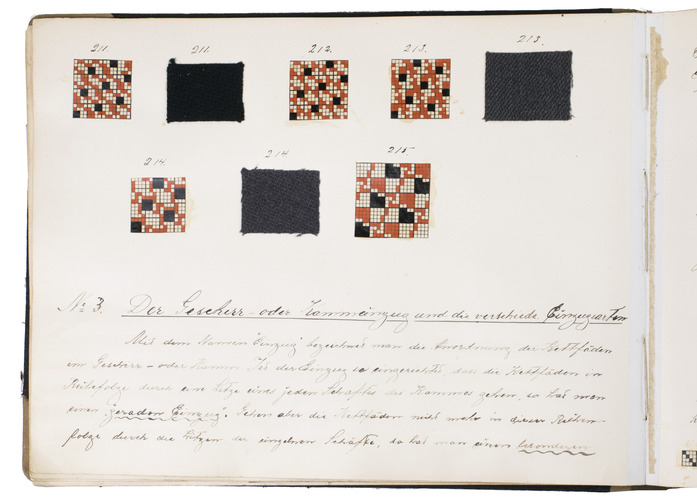 211. 211. 212. 213. 213.
214 214 215.
No 3. Der Geschirr- oder Kammeinzug und die verschiede. Einzugarten
Mit dem Namen "Einzug" bezeichnet man die Anordnung der Kettfäden
im Geschirr- oder Kamm. Ist der Einzug so eingerichtet, dass die Kettfäden in
Reihefolge durch eine Litze eines jeden Schaftes des Kammes gehen, so hat man
einen "geraden Einzug". Gehen aber die Kettfäden nicht mehr in dieser Reihen-
folge durch die Litzen der einzelnen Schäfte, so hat man einen besonderen